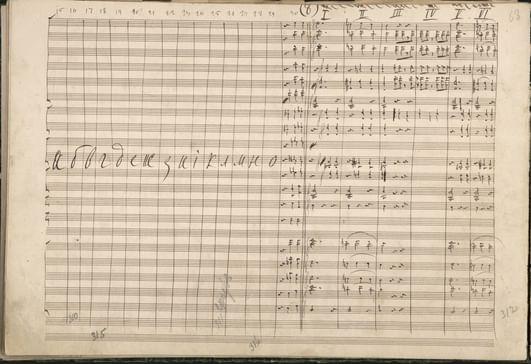 15 16 17 18 19 20 21 22 23 24 25 26 27 28 29 30 6 63
I II III IV V VI
а б в г д е ж з и і к л м н о
315 312